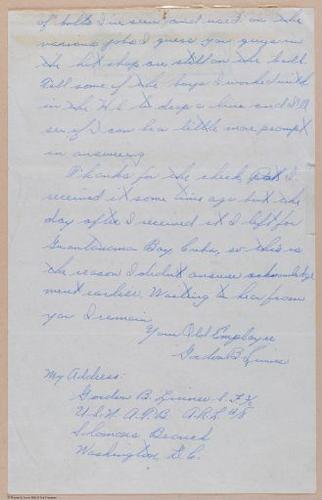 of bolts I've seen and used on the
various jobs I guess you guys in
the hut shop are still on the ball
Tell some of the boys I worked with
in the to drop a line and I'll
see if I can be a little more prompt
in answering
Thanks for the check Pat I
received it some time ago but the
day after I received it I left for
Guantanama Bay, Cuba, so this is
the reason I didn't answer acknowledge
ment earlier. Waiting to hear from
you I remain
Your Old Employee
Gordon B.
My Address:
Gordon B.
U.S.N. A.P.B.
Solomons Branch
Washington D.C.